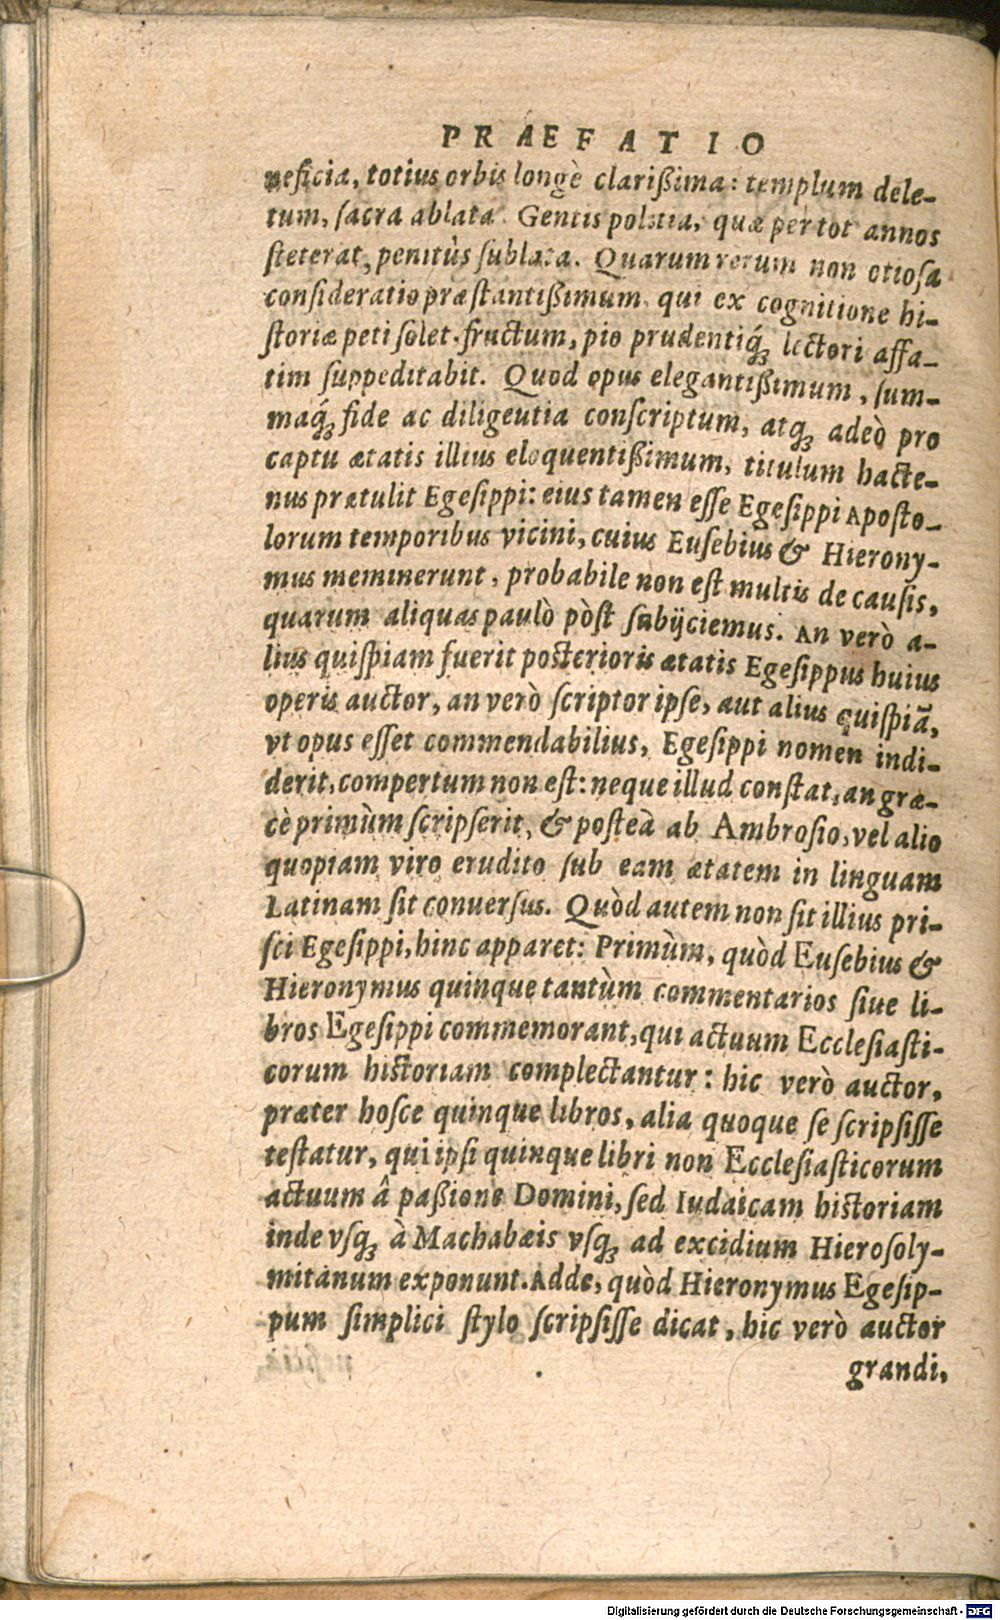 PRAEFATIO
neficia, totius orbis longè clarißima: templum dele-
tum, ſacra ablata. Gentis politia, quæ per tot annos
ſteterat, penitùs ſublata. Quarum rerum non otioſa
conſideratio præſtantißimum, qui ex cognitione hi-
ſtoriæ peti ſolet, fructum, pio prudentiq́ꝫ lectori affa-
tim ſuppeditabit. Quod opus elegantißimum, ſum-
maq́ꝫ fide ac diligeutia conſcriptum, atq́ꝫ adeò pro
captu ætatis illius eloquentißimum, titulum hacte-
nus prætulit Egeſippi: eius tamen eſſe Egeſippi Apoſto-
lorum temporibus vicini, cuius Euſebius & Hierony-
mus meminerunt, probabile non eſt multis de cauſis,
quarum aliquas paulò pòſt ſubijciemus. An verò a-
lius quiſpiam fuerit poſterioris ætatis Egeſippus huius
operis auctor, an verò ſcriptor ipſe, aut alius quiſpiā,
vt opus eſſet commendabilius, Egeſippi nomen indi-
derit, compertum non eſt: neque illud conſtat, an græ-
cè primùm ſcripſerit, & poſteà ab Ambroſio, vel alio
quopiam viro erudito ſub eam ætatem in linguam
Latinam ſit conuerſus. Quòd autem non ſit illius pri-
ſci Egeſippi, hinc apparet: Primùm, quòd Euſebius &
Hieronymus quinque tantùm commentarios ſiue li-
bros Egeſippi commemorant, qui actuum Eccleſiaſti-
corum hiſtoriam complectantur: hic verò auctor,
præter hoſce quinque libros, alia quoque ſe ſcripſiſſe
teſtatur, qui ipſi quinque libri non Eccleſiaſticorum
actuum â paßione Domini, ſed Iudaicam hiſtoriam
inde vſq́ꝫ à Machabæis vſq́ꝫ ad excidium Hieroſoly-
mitanum exponunt. Adde, quòd Hieronymus Egeſip-
pum ſimplici ſtylo ſcripſiſſe dicat, hic verò auctor
grandi,
Digitalisierung gefördert durch die Deutsche Forschungsgemeinschaft - DFG